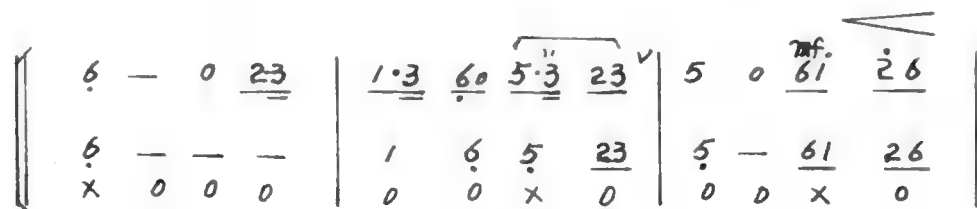 mf.
6̣ — 0 23 | 1·3 6̣0 5·3 23 ∨ | 5 0 61 2̇6 |
6̣ — — — | 1 6̣ 5̣ 23 | 5̣ — 61 26 |
X 0 0 0 | 0 0 X 0 | 0 0 X 0 |